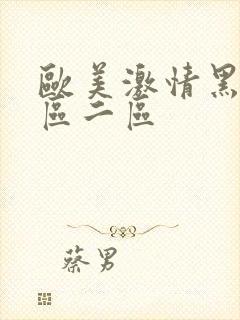 歐美激情黑
區二區
蔡男